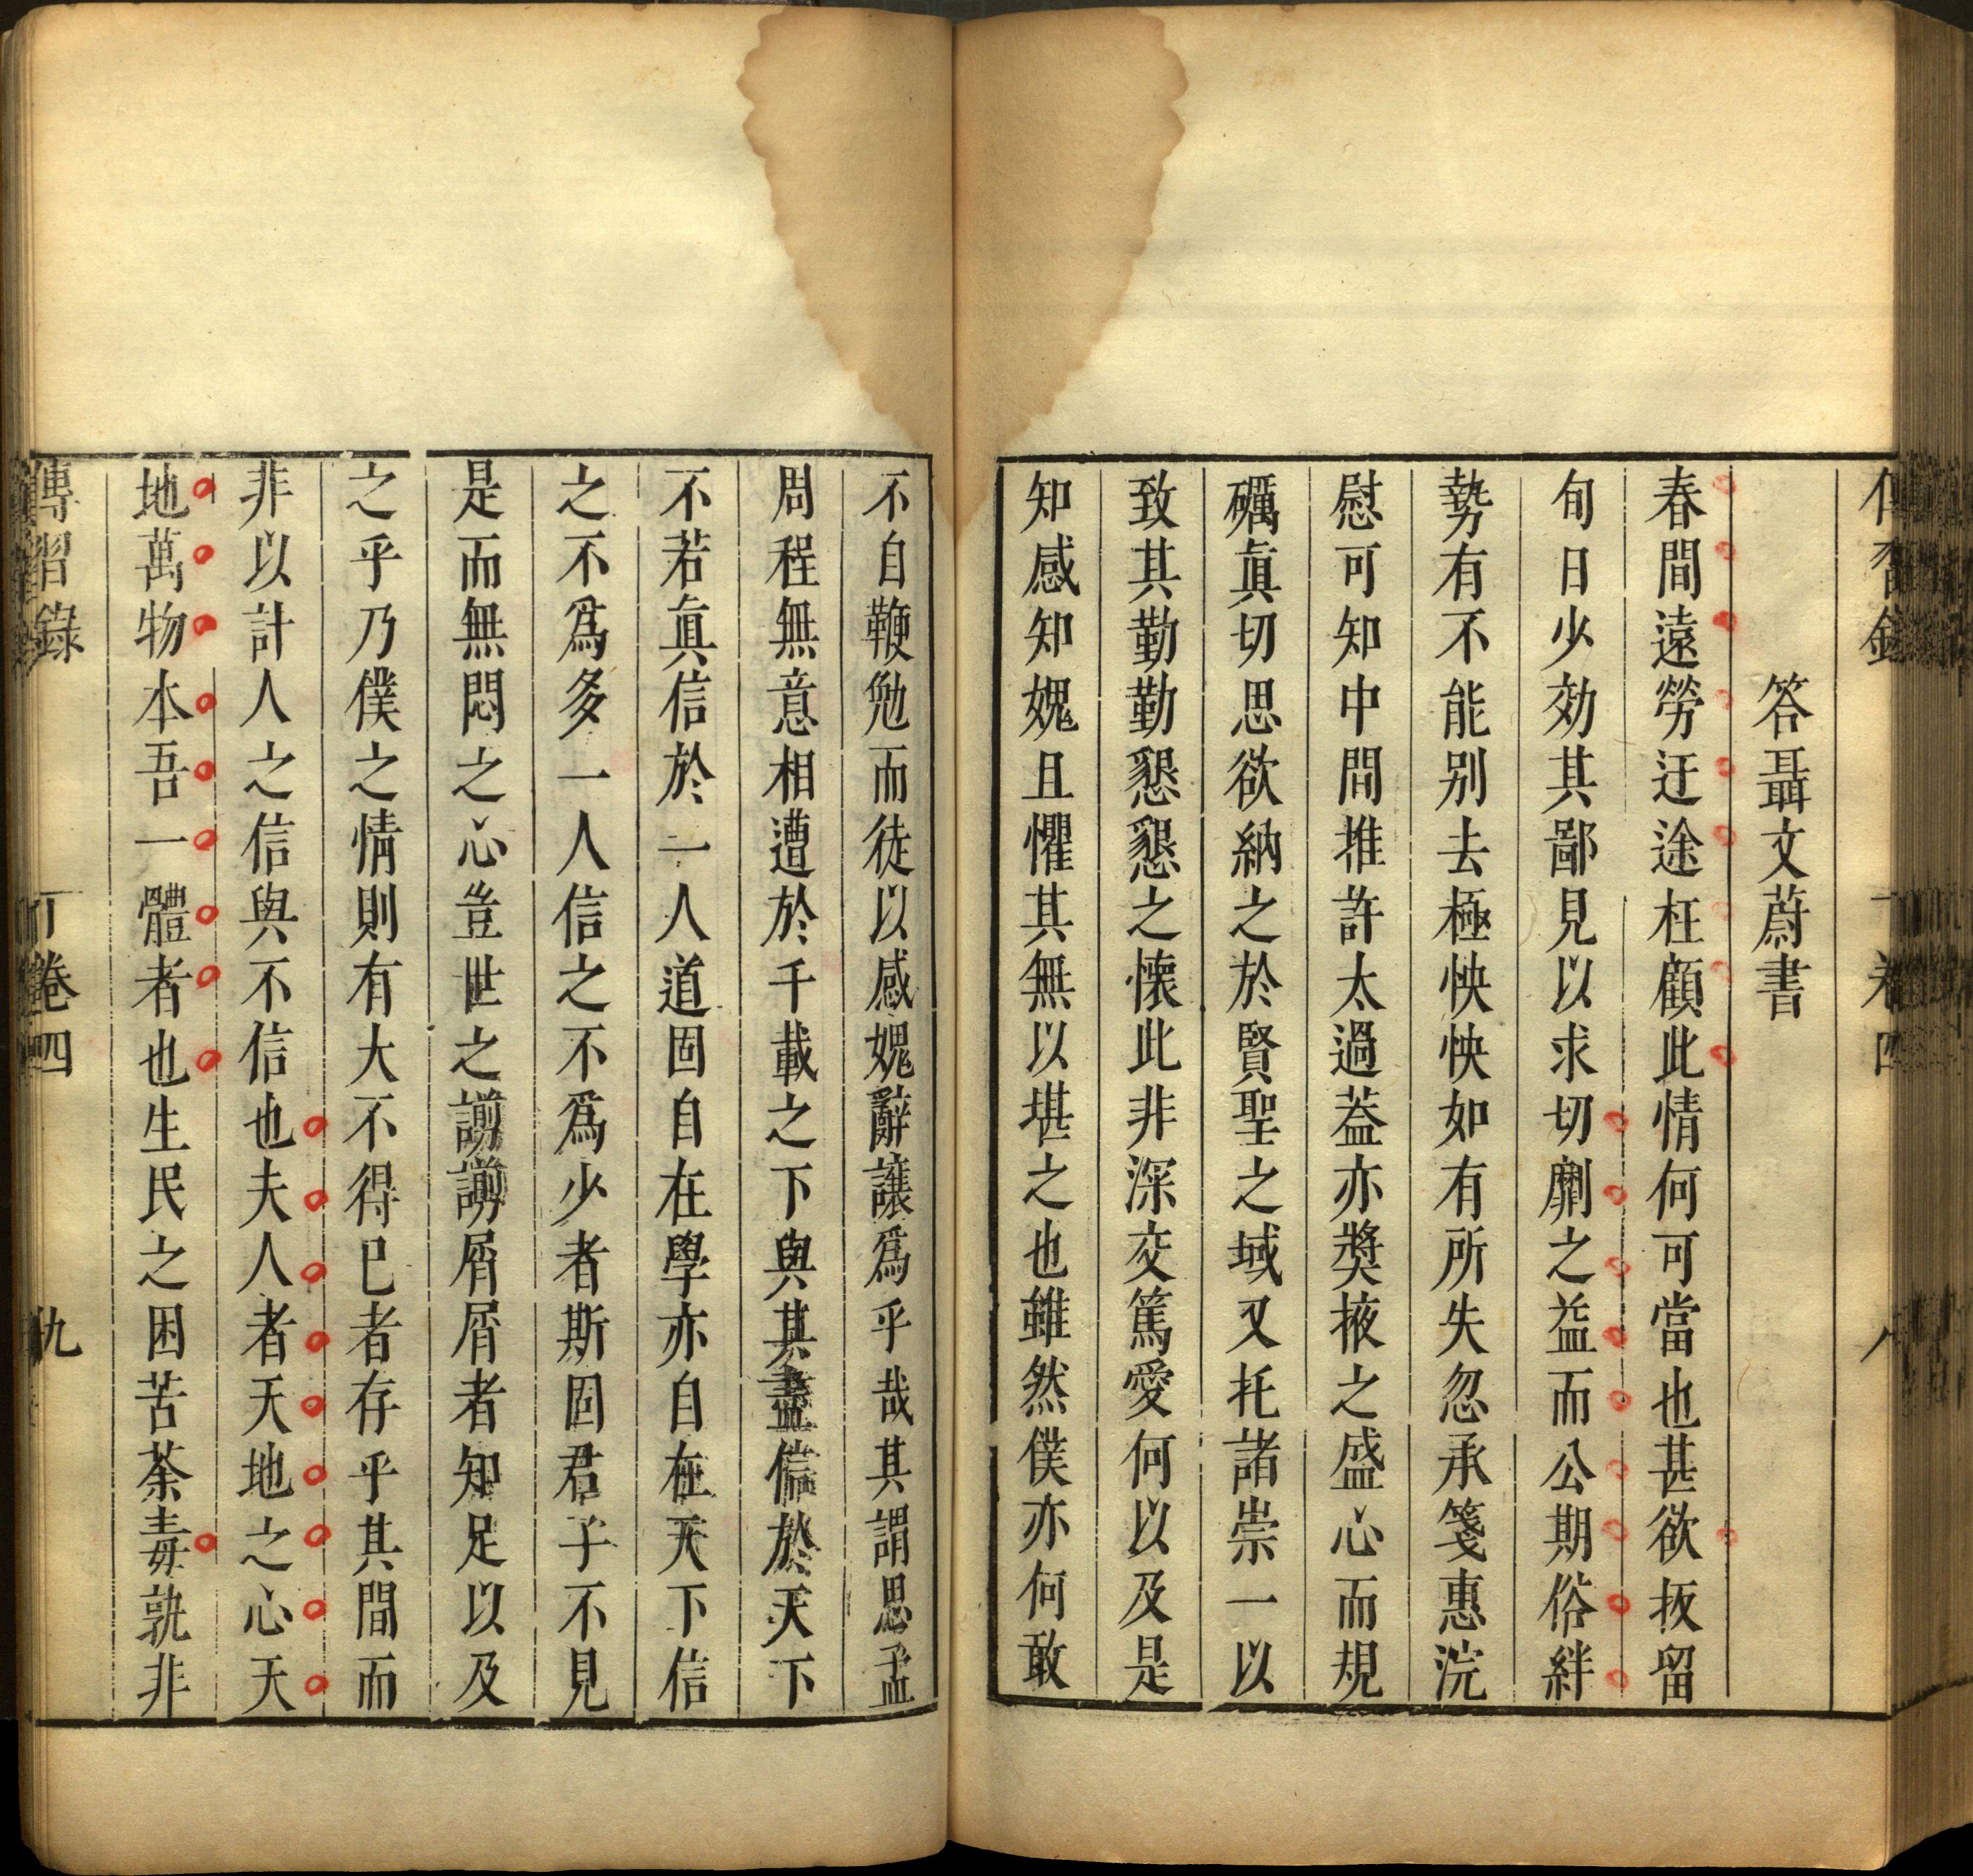 傳習錄 卷四 八
答聶文蔚書
春間遠勞迂途枉顧此情何可當也甚欲扳留
旬日少効其鄙見以求切劘之益而公期俗絆
勢有不能别去極怏怏如有所失忽承箋惠浣
慰可知中間推許太過葢亦奬掖之盛心而規
礪眞切思欲納之於賢聖之域又托諸崇一以
致其勤勤懇懇之懐此非深交篤愛何以及是
知感知媿且懼其無以堪之也雖然僕亦何敢
不自鞭勉而徒以感媿辭讓爲乎哉其謂思孟
周程無意相遭於千載之下與其盡信於天下
不若眞信於一人道固自在學亦自在天下信
之不爲多一人信之不爲少者斯固君子不見
是而無悶之心豈世之謭謭屑屑者知足以及
之乎乃僕之情則有大不得已者存乎其間而
非以計人之信與不信也夫人者天地之心天
地萬物本吾一體者也生民之困苦荼毒孰非
傳習錄 卷四 九